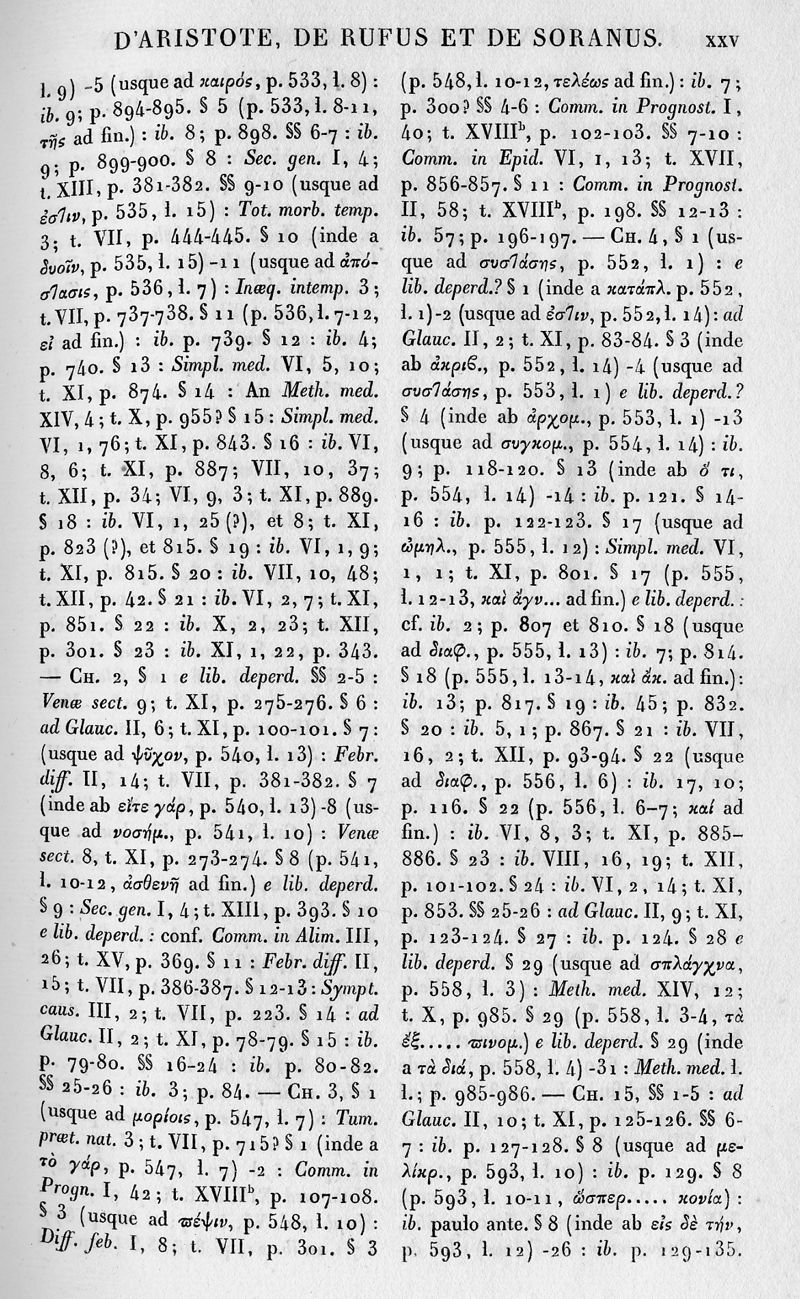 D'ARISTOTE, DE RUFUS ET DE SORANUS. xxv
l. 9) -5 (usque ad καιρός, p. 533, l. 8) :
ib. 9; p. 894-895. § 5 (p. 533, l. 8-11,
τῆς ad fin.) : ib. 8; p. 898. §§ 6-7 : ib.
9; p. 899-900. § 8 : Sec. gen. I, 4;
t. XIII, p. 381-382. §§ 9-10 (usque ad
ἐστιν, p. 535, l. 15) : Tot. morb. temp.
3; t. VII, p. 444-445. § 10 (inde a
δυοῖν, p. 535, l. 15) -11 (usque ad ἀπό-
στασις, p. 536, l. 7) : Inæq. intemp. 3;
t. VII, p. 737-738. § 11 (p. 536, l. 7-12,
εἰ ad fin.) : ib. p. 739. § 12 : ib. 4;
p. 740. § 13 : Simpl. med. VI, 5, 10;
t. XI, p. 874. § 14 : An Meth. med.
XIV, 4; t. X, p. 955? § 15 : Simpl. med.
VI, 1, 76; t. XI, p. 843. § 16 : ib. VI,
8, 6; t. XI, p. 887; VII, 10, 37;
t. XII, p. 34; VI, 9, 3; t. XI, p. 889.
§ 18 : ib. VI, 1, 25 (?), et 8; t. XI,
p. 823 (?), et 815. § 19 : ib. VI, 1, 9;
t. XI, p. 815. § 20 : ib. VII, 10, 48;
t. XII, p. 42. § 21 : ib. VI, 2, 7; t. XI,
p. 851. § 22 : ib. X, 2, 23; t. XII,
p. 301. § 23 : ib. XI, 1, 22, p. 343.
— CH. 2, § 1 e lib. deperd. §§ 2-5 :
Venæ sect. 9; t. XI, p. 275-276. § 6 :
ad Glauc. II, 6; t. XI, p. 100-101. § 7 :
(usque ad ψῦχον, p. 540, l. 13) : Febr.
diff. II, 14; t. VII, p. 381-382. § 7
(inde ab εἴτε γάρ, p. 540, l. 13) -8 (us-
que ad νοσήμ., p. 541, l. 10) : Venæ
sect. 8, t. XI, p. 273-274. § 8 (p. 541,
l. 10-12, ἀσθενῆ ad fin.) e lib. deperd.
§ 9 : Sec. gen. I, 4; t. XIII, p. 393. § 10
e lib. deperd. : conf. Comm. in Alim. III,
26; t. XV, p. 369. § 11 : Febr. diff. II,
15; t. VII, p. 386-387. § 12-13 : Sympt.
caus. III, 2; t. VII, p. 223. § 14 : ad
Glauc. II, 2; t. XI, p. 78-79. § 15 : ib.
p. 79-80. §§ 16-24 : ib. p. 80-82.
§§ 25-26 : ib. 3; p. 84. — CH. 3, § 1
(usque ad μορίοις, p. 547, l. 7) : Tum.
præt. nat. 3; t. VII, p. 715? § 1 (inde a
τὸ γάρ, p. 547, l. 7) -2 : Comm. in
Progn. I, 42; t. XVIIIb, p. 107-108.
§ 3 (usque ad πέψιν, p. 548, l. 10) :
Diff. feb. I, 8; t. VII, p. 301. § 3
(p. 548, l. 10-12, τελέως ad fin.) : ib. 7;
p. 300? §§ 4-6 : Comm. in Prognost. I,
40; t. XVIIIb, p. 102-103. §§ 7-10 :
Comm. in Epid. VI, 1, 13; t. XVII,
p. 856-857. § 11 : Comm. in Prognost.
II, 58; t. XVIIIb, p. 198. §§ 12-13 :
ib. 57; p. 196-197. — CH. 4, § 1 (us-
que ad συστάσης, p. 552, l. 1) : e
lib. deperd.? § 1 (inde a κατάπλ. p. 552,
l. 1)-2 (usque ad ἐστιν, p. 552, l. 14) : ad
Glauc. II, 2; t. XI, p. 83-84. § 3 (inde
ab ἀκριβ., p. 552, l. 14) -4 (usque ad
συστάσης, p. 553, l. 1) e lib. deperd.?
§ 4 (inde ab ἀρχομ., p. 553, l. 1) -13
(usque ad συγκομ., p. 554, l. 14) : ib.
9; p. 118-120. § 13 (inde ab ὅ τι,
p. 554, l. 14) -14 : ib. p. 121. § 14-
16 : ib. p. 122-123. § 17 (usque ad
ὠμηλ., p. 555, l. 12) : Simpl. med. VI,
1, 1; t. XI, p. 801. § 17 (p. 555,
l. 12-13, καὶ ἄγν... ad fin.) e lib. deperd. :
cf. ib. 2; p. 807 et 810. § 18 (usque
ad διαφ., p. 555, l. 13) : ib. 7; p. 814.
§ 18 (p. 555, l. 13-14, καὶ ἄκ. ad fin.) :
ib. 13; p. 817. § 19 : ib. 45; p. 832.
§ 20 : ib. 5, 1; p. 867. § 21 : ib. VII,
16, 2; t. XII, p. 93-94. § 22 (usque
ad διαφ., p. 556, l. 6) : ib. 17, 10;
p. 116. § 22 (p. 556, l. 6-7; καί ad
fin.) : ib. VI, 8, 3; t. XI, p. 885-
886. § 23 : ib. VIII, 16, 19; t. XII,
p. 101-102. § 24 : ib. VI, 2, 14; t. XI,
p. 853. §§ 25-26 : ad Glauc. II, 9; t. XI,
p. 123-124. § 27 : ib. p. 124. § 28 e
lib. deperd. § 29 (usque ad σπλάγχνα,
p. 558, l. 3) : Meth. med. XIV, 12;
t. X, p. 985. § 29 (p. 558, l. 3-4, τὰ
ἐξ..... πινομ.) e lib. deperd. § 29 (inde
a τὰ διά, p. 558, l. 4) -31 : Meth. med. l.
l.; p. 985-986. — CH. 15, §§ 1-5 : ad
Glauc. II, 10; t. XI, p. 125-126. §§ 6-
7 : ib. p. 127-128. § 8 (usque ad με-
λίκρ., p. 593, l. 10) : ib. p. 129. § 8
(p. 593, l. 10-11, ὥσπερ..... κονία) :
ib. paulo ante. § 8 (inde ab εἰς δὲ τήν,
p. 593, l. 12) -26 : ib. p. 129-135.